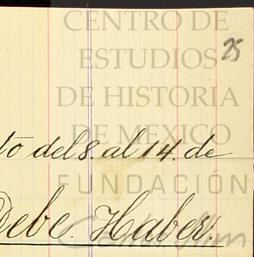 CENTRO DE
ESTUDIOS 25
DE HISTORIA
DE MEXICO
to del 8. al 14. de
FUNDACIÓN
Debe. Haber.